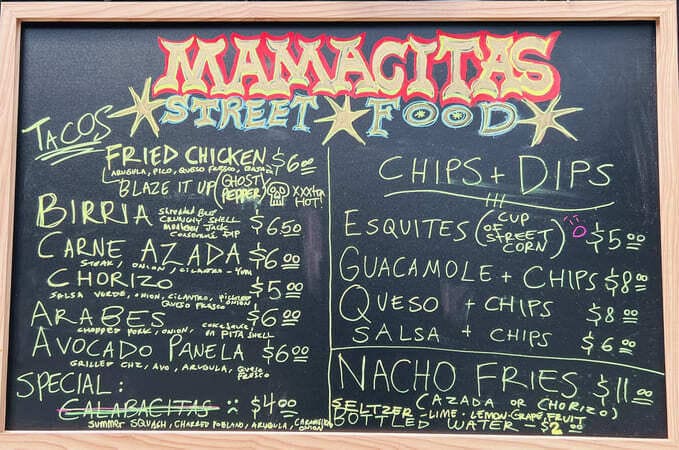 MAMACITAS
STREET FOOD
TACOS
FRIED CHICKEN $6.00
ARUGULA, PICO, QUESO FRESCO,
BLAZE IT UP (GHOST PEPPER) XXXTRA HOT!
BIRRIA $6.50
Shredded Beef
CRUNCHY SHELL
MONTEREY JACK
CONSOMMÉ DIP
CARNE AZADA $6.00
STEAK, ONION, CILANTRO - YUM
CHORIZO $5.00
SALSA VERDE, ONION, CILANTRO, PICKLED ONION
QUESO FRESCO
ARABES $6.00
CHOPPED PORK, ONION,
ON PITA SHELL
AVOCADO PANELA $6.00
GRILLED CHZ, AVO, ARUGULA, QUESO FRESCO
SPECIAL:
CALABACITAS :( $4.00
SUMMER SQUASH, CHARRED POBLANO, ARUGULA, CARAMELIZED ONION
CHIPS + DIPS
ESQUITES (CUP OF STREET CORN) $5.00
GUACAMOLE + CHIPS $8.00
QUESO + CHIPS $8.00
SALSA + CHIPS $6.00
NACHO FRIES $11.00
(AZADA OR CHORIZO)
SELTZER - LIME - LEMON - GRAPEFRUIT
BOTTLED WATER - $2.00